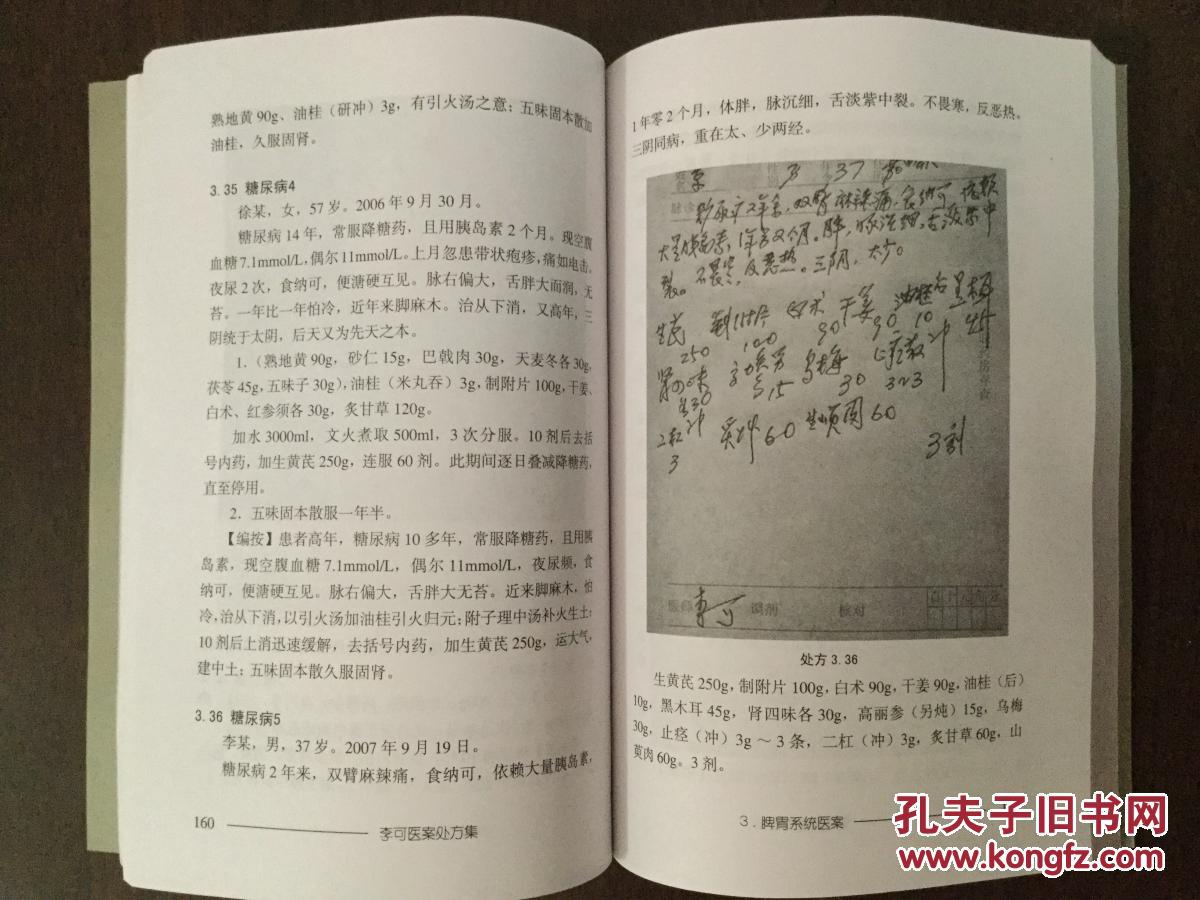 熟地黄90g、油桂（研冲）3g，有引火汤之意；五味固本散加
油桂，久服固肾。
3.35 糖尿病4
徐某，女，57岁。2006年9月30月。
糖尿病14年，常服降糖药，且用胰岛素2个月。现空腹
血糖7.1mmol/L，偶尔11mmol/L。上月忽患带状疱疹，痛如电击。
夜尿2次，食纳可，便溏硬互见。脉右偏大，舌胖大而润，无
苔。一年比一年怕冷，近年来脚麻木。治从下消，又高年，三
阴统于太阴，后天又为先天之本。
1.（熟地黄90g，砂仁15g，巴戟肉30g，天麦冬各30g，
茯苓45g，五味子30g），油桂（米丸吞）3g，制附片100g，干姜、
白术、红参须各30g，炙甘草120g。
加水3000ml，文火煮取500ml，3次分服。10剂后去括
号内药，加生黄芪250g，连服60剂。此期间逐日叠减降糖药，
直至停用。
2．五味固本散服一年半。
【编按】患者高年，糖尿病10多年，常服降糖药，且用胰
岛素，现空腹血糖7.1mmol/L，偶尔11mmol/L，夜尿频，食
纳可，便溏硬互见。脉右偏大，舌胖大无苔。近来脚麻木，怕
冷，治从下消，以引火汤加油桂引火归元；附子理中汤补火生土；
10剂后上消迅速缓解，去括号内药，加生黄芪250g，运大气，
建中土；五味固本散久服固肾。
3.36 糖尿病5
李某，男，37岁。2007年9月19日。
糖尿病2年来，双臂麻辣痛，食纳可，依赖大量胰岛素，
160
李可医案处方集
1年零2个月，体胖，脉沉细，舌淡紫中裂。不畏寒，反恶热。
三阴同病，重在太、少两经。
李 37
大量胰岛素，1年零2个月。胖，脉沉细，舌淡紫中
裂。不畏寒，反恶热。三阴，太少。
干姜 油桂后
250 100 90 90 10
乌梅
15 30 3~3
3 60 60
3剂
医师 李可 调剂 核对
处方3.36
生黄芪250g，制附片100g，白术90g，干姜90g，油桂（后）
10g，黑木耳45g，肾四味各30g，高丽参（另炖）15g，乌梅
30g，止痉（冲）3g～3条，二杠（冲）3g，炙甘草60g，山
萸肉60g。3剂。
3．脾胃系统医案
孔夫子旧书网
www.kongfz.com